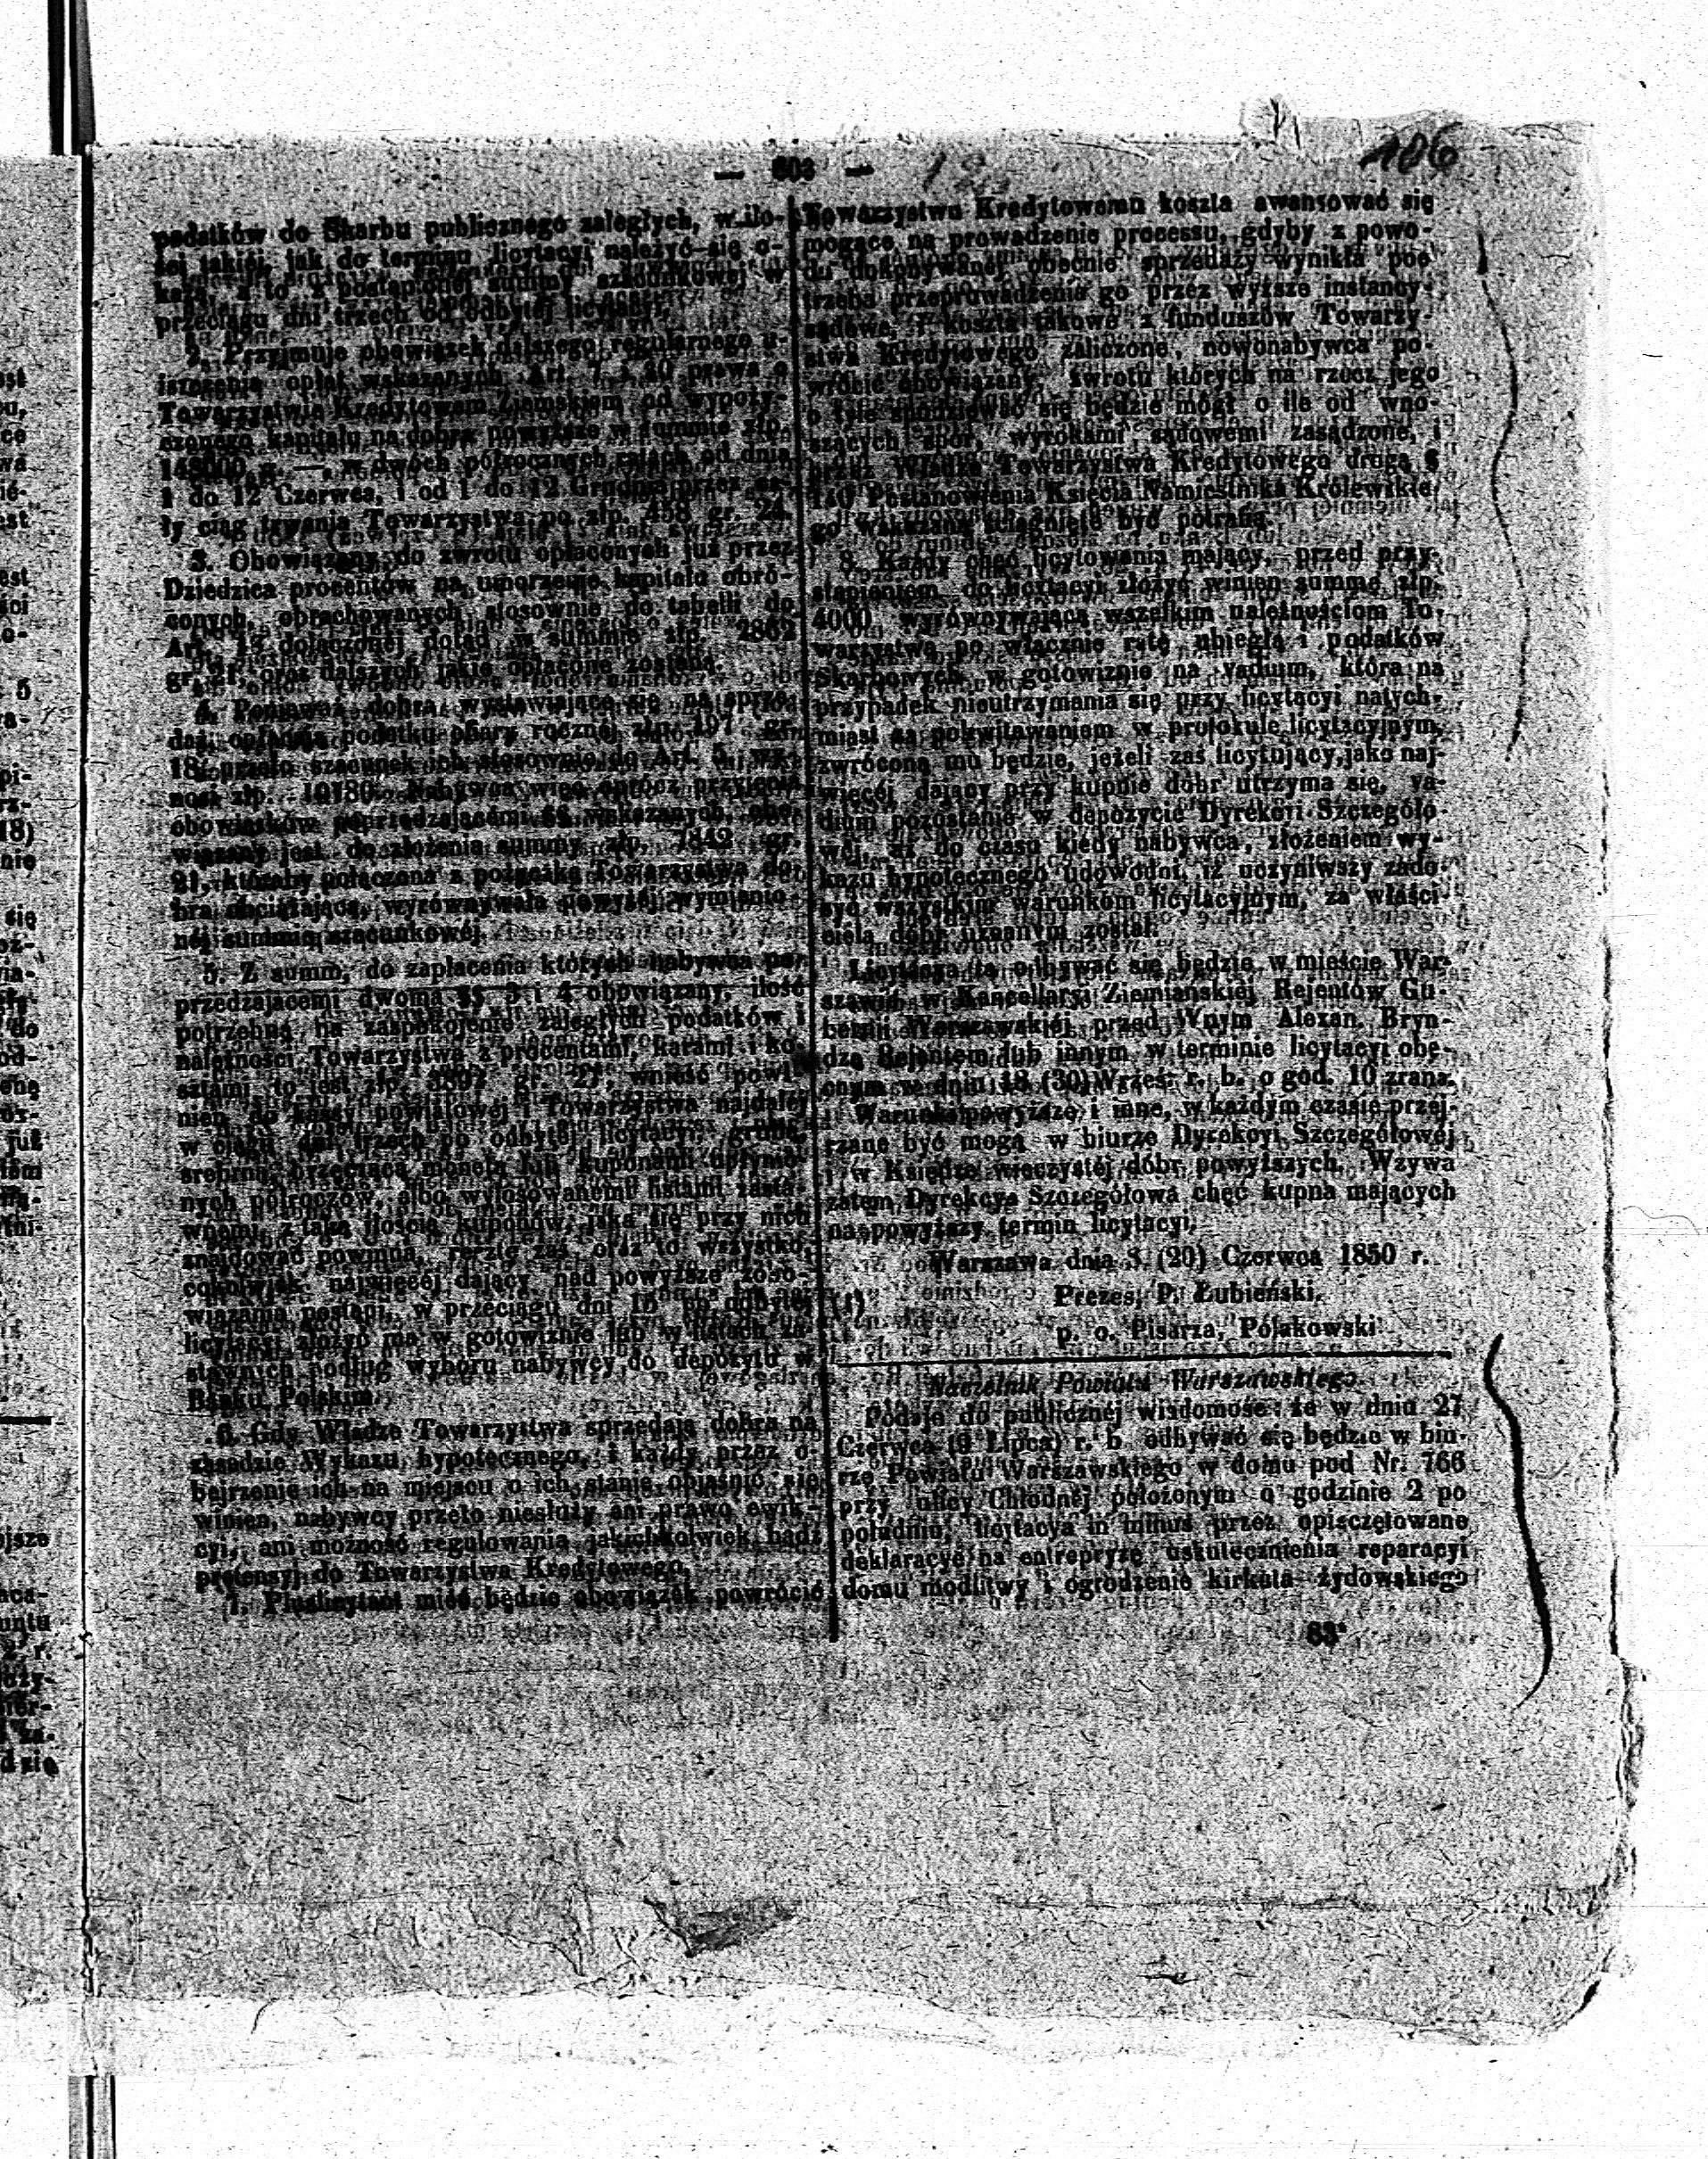 — 603 —
106
podatków do Skarbu publicznego zaległych, w ilo-
ści jakiéj, jak do terminu licytacyi należyć się o-
każe, a to z postąpionej summy szacunkowej w
przeciągu dni trzech od odbytéj licytacyi.
2. Przyjmuje obowiązek dalszego regularnego u-
iszczenia opłat wskazanych Art. 7 i 20 prawa o
Towarzystwie Kredytowem Ziemskiem od wypoży-
czonego kapitału na dobra powyższe w summie złp.
148000 g. —, w dwóch półrocznych ratach od dnia
1 do 12 Czerwca, i od 1 do 12 Grudnia przez ca-
ły ciąg trwania Towarzystwa po złp. 458 gr. 24.
3. Obowiązany do zwrotu opłaconych już przez
Dziedzica procentów na umorzenie kapitału obró-
conych, obrachowanych stosownie do tabelli do
Art. dołączonéj dotąd w summie złp. 2862
gr. 21, oraz dalszych jakie opłacone zostaną.
4. Ponieważ dobra wystawiające się na sprze-
daż, opłacają podatku ofiary rocznéj złp. 197 gr.
18, przeto szacunek ich stosownie do Art. 5, wy-
nosi złp. Nabywca więc oprócz przyjęcia
obowiązków poprzedzającemi §§ wskazanych, obo-
wiązany jest do złożenia summy złp. 7342 gr.
21, któraby połączona z pożyczką Towarzystwa do-
bra obciążającą, wyrównywała powyżéj wymienio-
néj summie szacunkowéj.
5. Z summ, do zapłacenia których nabywca po-
przedzającemi dwoma §§ 3 i 4 obowiązany, ilość
potrzebną na zaspokojenie zaległych podatków i
należności Towarzystwa z procentami, karami i ko-
sztami, to jest złp. 3892 gr. 27, wnieść powi-
nien do kassy powiatowej i Towarzystwa najdaléj
w ciągu dni trzech po odbytéj licytacyi, grubą,
srebrną, brzęczącą monetą lub kuponami upłynio-
nych półroczów, albo wylosowanemi listami zasta-
wnemi, z taką ilością kuponów, jaka się przy nich
znajdować powinna, resztę zaś, oraz to wszystko,
cokolwiek najwięcéj dający nad powyższe zobo-
wiązania postąpi, w przeciągu dni po odbytéj
licytacyi złożyć ma w gotowiźnie lub w listach za-
stawnych podług wyboru nabywcy do depozytu w
Banku Polskim.
6. Gdy Władze Towarzystwa sprzedają dobra na
zasadzie Wykazu hypotecznego, i każdy przez o-
bejrzenie ich na miejscu o ich stanie objaśnić się
winien, nabywcy przeto niesłuży ani prawo ewik-
cyi, ani możność regulowania jakichkolwiek bądź
pretensyj do Towarzystwa Kredytowego.
7. Pluslicytant mieć będzie obowiązek powrócić
Towarzystwu Kredytowemu koszta awansować się
mogące na prowadzenie processu, gdyby z powo-
du dokonywanéj obecnie sprzedaży wynikła po-
trzeba przeprowadzenia go przez wyższe instancy-
sądowe, i koszta takowe z funduszów Towarzy-
stwa Kredytowego zaliczone, nowonabywca po-
wrócić obowiązany, zwrotu których na rzecz jego
o tyle spodziewać się będzie mógł o ile od wno-
szących spór, wyrokami sądowemi zasądzone, i
przez Władze Towarzystwa Kredytowego drogą §
140 Postanowienia Księcia Namiestnika Królewskie-
go wskazaną ściągnięte być potrafią.
8. Każdy chęć licytowania mający, przed przy-
stąpieniem do licytacyi złożyć winien summę złp.
4000 wyrównywającą wszelkim należnościom To-
warzystwa po włącznie ratę ubiegłą i podatków
Skarbowych w gotowiznie na vadium, która na
przypadek nieutrzymania się przy licytacyi natych-
miast za pokwitowaniem w protokule licytacyjnym,
zwróconą mu będzie, jeżeli zaś licytujący, jako naj-
więcéj dający przy kupnie dóbr utrzyma się, va-
dium pozostanie w depozycie Dyrekcyi Szczegóło-
wéj, aż do czasu kiedy nabywca, złożeniem wy-
kazu hypotecznego udowodni, iż uczyniwszy zado-
syć wszystkim warunkom licytacyjnym, za właści-
ciela dóbr uznanym został.
Licytacya ta odbywać się będzie w mieście War-
szawie w Kancellaryi Ziemiańskiéj Rejentów Gu-
bernii Warszawskiéj przed Wnym Alexan. Bryn-
dzą Rejentem lub innym w terminie licytacyi obe-
cnym w dniu 18 (30) Wrześ. r. b. o god. 10 zrana.
Warunki powyższe i inne, w każdym czasie przej-
rzane być mogą w biurze Dyrekcyi Szczegółowéj
i w Księdze wieczystéj dóbr powyższych. Wzywa
zatem Dyrekcya Szczegółowa chęć kupna mających
na powyższy termin licytacyi.
Warszawa dnia (20) Czerwca 1850 r.
Prezes, P. Łubieński.
(1)
p. o. Pisarza, Półakowski
Naczelnik Powiatu Warszawskiego.
Podaje do publicznéj wiadomości: że w dniu 27
Czerwca (9 Lipca) r. b. odbywać się będzie w biu-
rze Powiatu Warszawskiego w domu pod Nr. 766
przy ulicy Chłodnéj położonym o godzinie 2 po
południu, licytacya in minus przez opieczętowane
deklaracye na entrepryzę uskutecznienia reparacyi
domu modlitwy i ogrodzenie kirkuta żydowskiego
83*